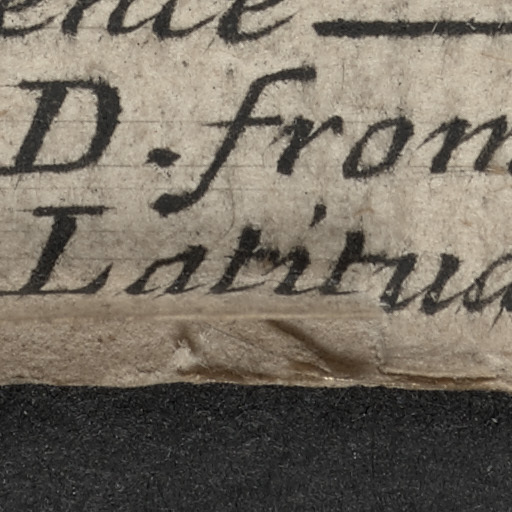 ence —
D. from
Latitud